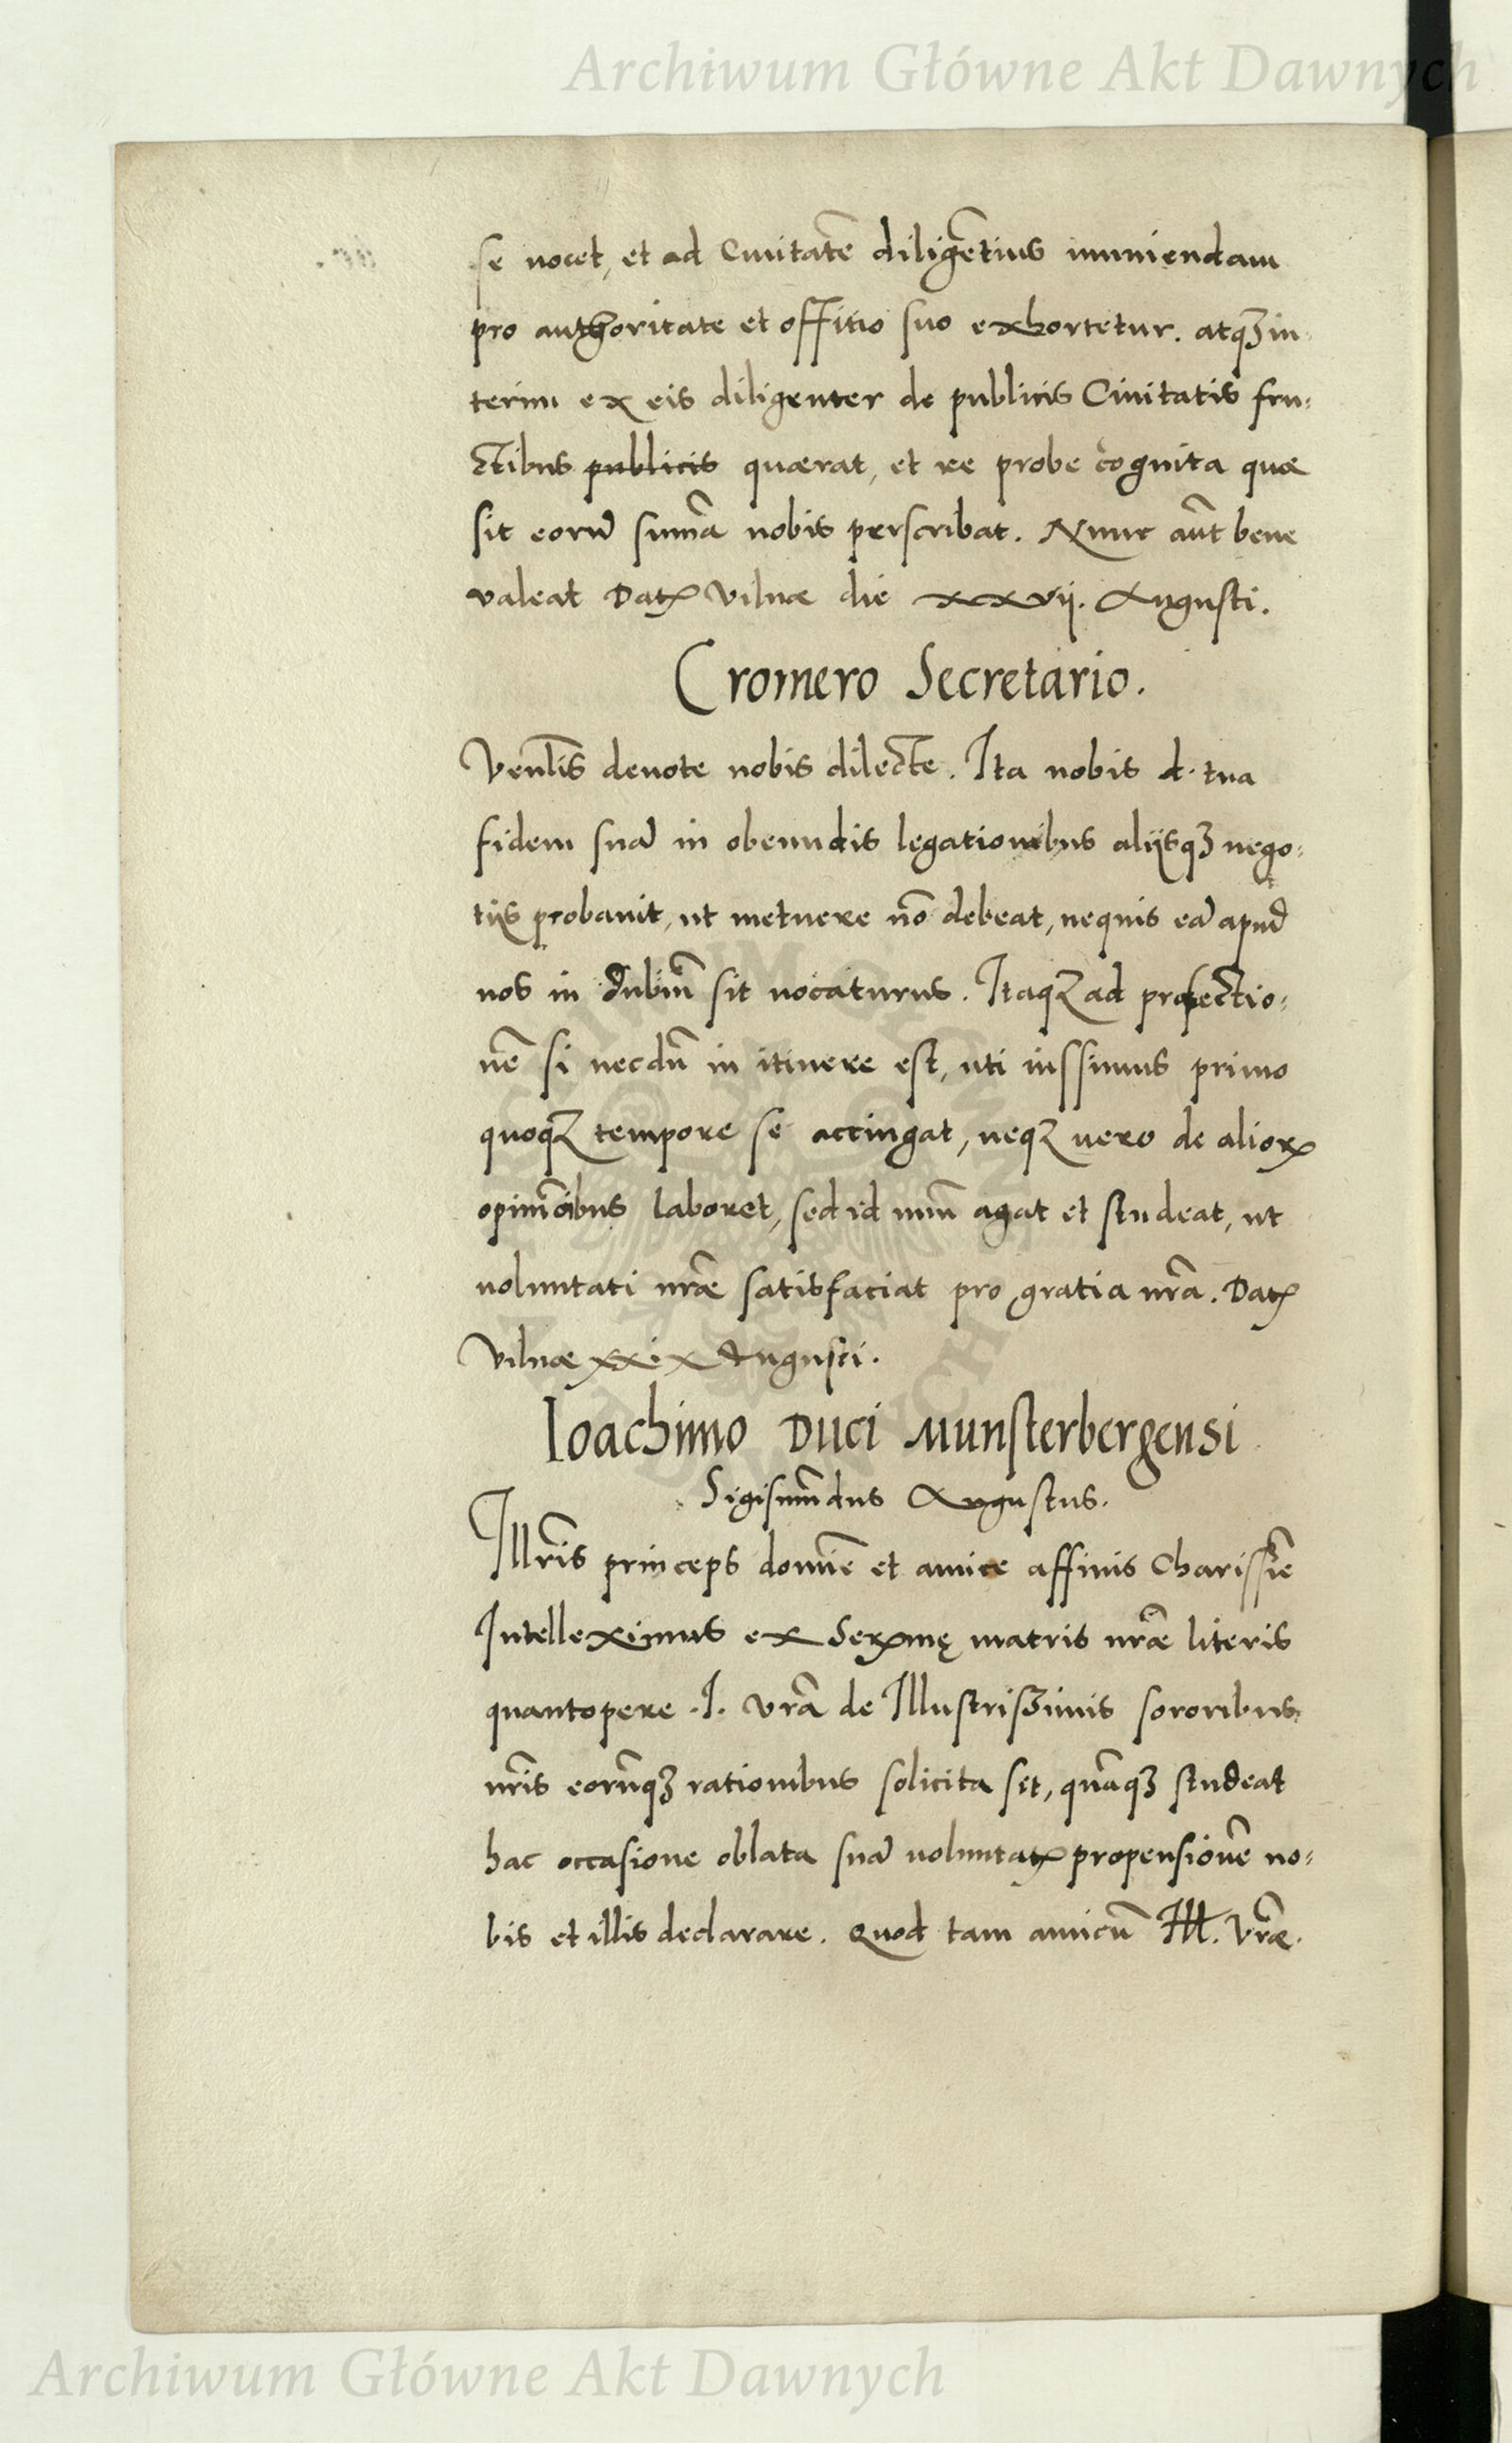 Archiwum Główne Akt Dawnych
se nocet, et ad Ciuitatē diligētius muniendam
pro authoritate et offitio suo exhortetur. atqꝫ in-
terim ex eis diligenter de publicis Ciuitatis fru-
ctibus publicis quærat, et re probe cognita quæ
sit eorū sum̄a nobis perscribat. Nunc aūt bene
valeat Datꝝ Vilnæ die xxvij. Augusti.
Cromero Secretario.
Venl̄is deuote nobis dilecte. Ita nobis d. tua
fidem suā in obeundis legationibus alijsqꝫ nego-
tijs probauit, ut metuere nō debeat, nequis eā apud
nos in dubiū sit uocaturus. Itaqꝫ ad profectio-
nē si necdū in itinere est, uti iussimus primo
quoqꝫ tempore se accingat, neqꝫ uero de aliorꝝ
opinionibus laboret, sed id unū agat et studeat, ut
uoluntati nr̄æ satisfaciat pro gratia nr̄a. Datꝝ
Vilnæ xxix Augusti.
Ioachimo Duci Munsterbergensi
Sigismūdus Augustus.
Illr̄is princeps domīe et amice affinis Charissīe
Intelleximus ex Serꝝmę matris nr̄æ literis
quantopere .I. Vrā de Illustrissimis sororibus
nr̄is eorūqꝫ rationibus solicita sit, quāqꝫ studeat
hac occasione oblata suā uoluntatꝝ propensionē no-
bis et illis declarare. Quod tam amicū Ill. Vr̄æ.
Archiwum Główne Akt Dawnych